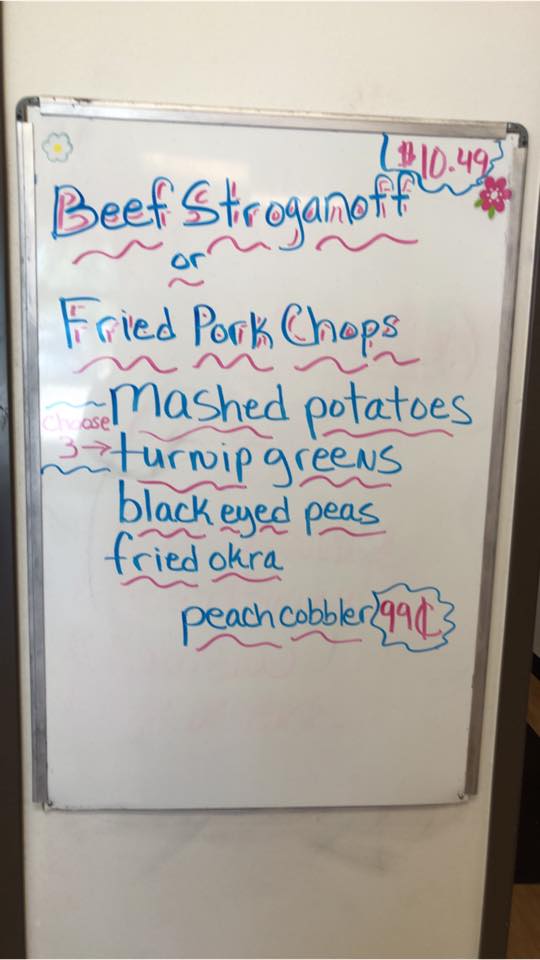 $10.49
Beef Stroganoff
or
Fried Pork Chops
mashed potatoes
choose
3→ turnip greens
black eyed peas
fried okra
peach cobbler 99¢